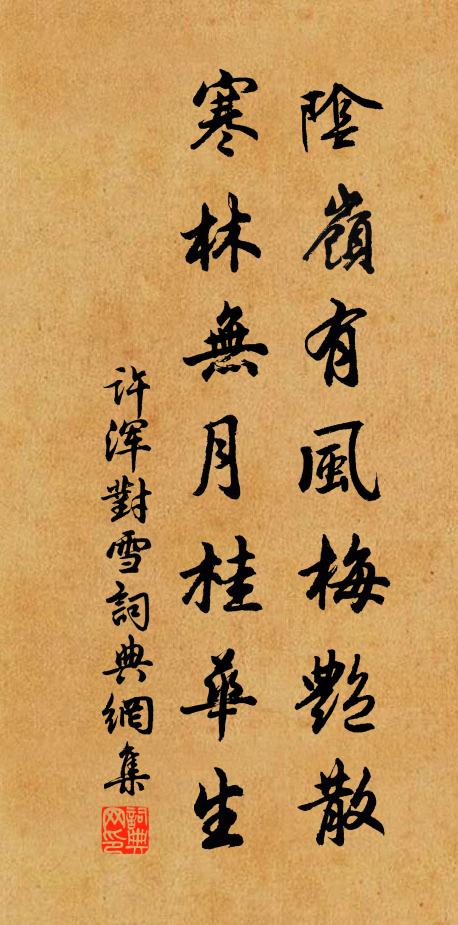 陰嶺有風梅艷散
寒林無月桂華生
许浑對雪詞典網集
詞典网印